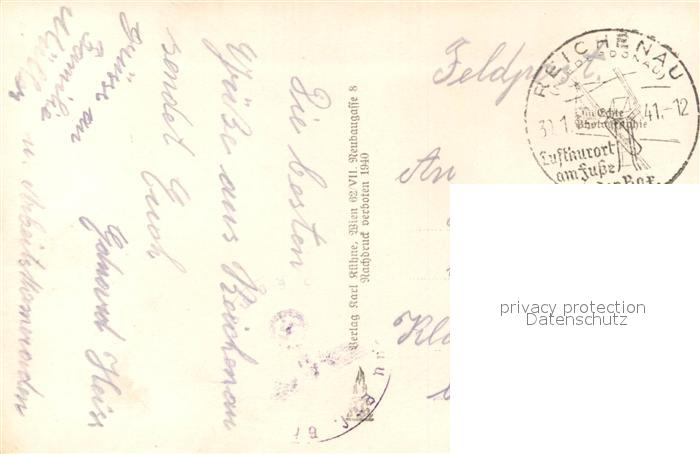 Die besten
Grüße aus Reichenau
sendet Euch
Eduard Heiss
Grüsse an
Familie
Müller
u. Arbeitskameraden
Verlag Karl Kühne, Wien 62/VII. Neubaugasse 8
Nachdruck verboten 1940
Feldpost.
An
REICHENAU
41.-12
Echte
Photographie
Luftkurort
am Fuße
der Rax
privacy protection
Datenschutz